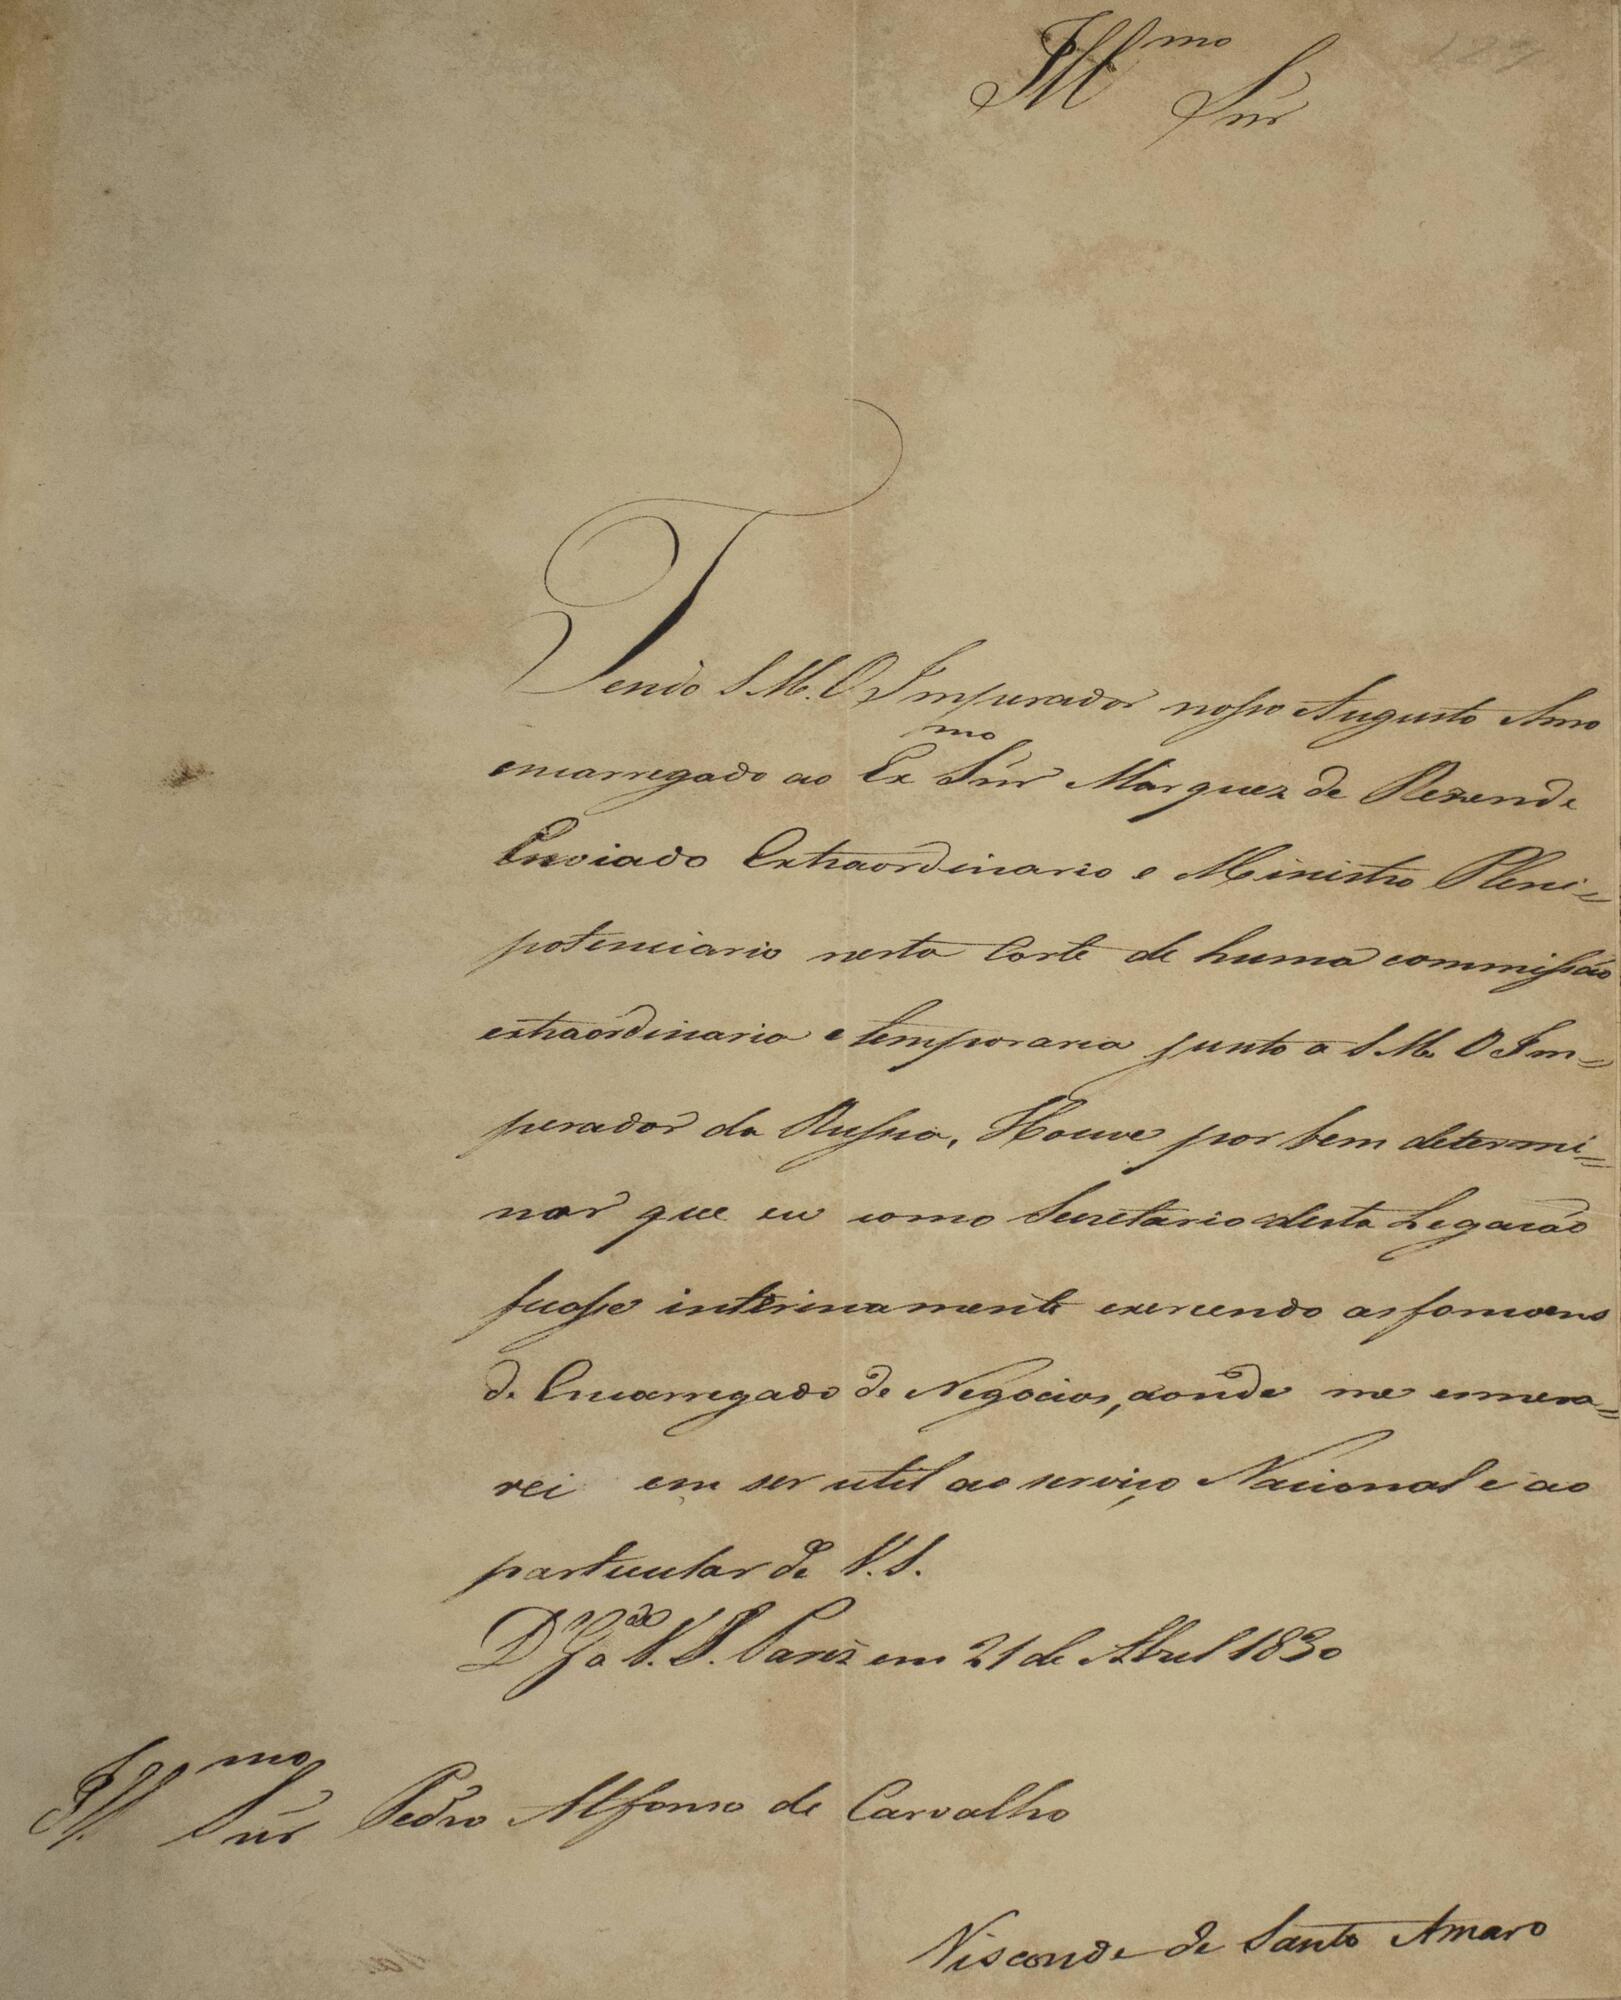 Illmo Snr
Tendo S. M. O Imperador nosso Augusto Amo
encarregado ao Exmo Snr Marquez de Rezende
Enviado Extraordinario e Ministro Pleni=
potenciario nesta Corte de huma commissão
extraordinaria e temporaria junto a S. M. O Im=
perador da Russia, Houve por bem determi=
nar que eu como Secretario desta Legacão
ficasse interinamente exercendo as funcoens
de Encarregado de Negocios, aonde me esmera=
rei em ser util ao serviço Nacional e ao
particular de V. S.
Ds Gde a V. S. Pariz em 21 de Abril 1830
Illmo Snr Pedro Alfonso de Carvalho
Visconde de Santo Amaro